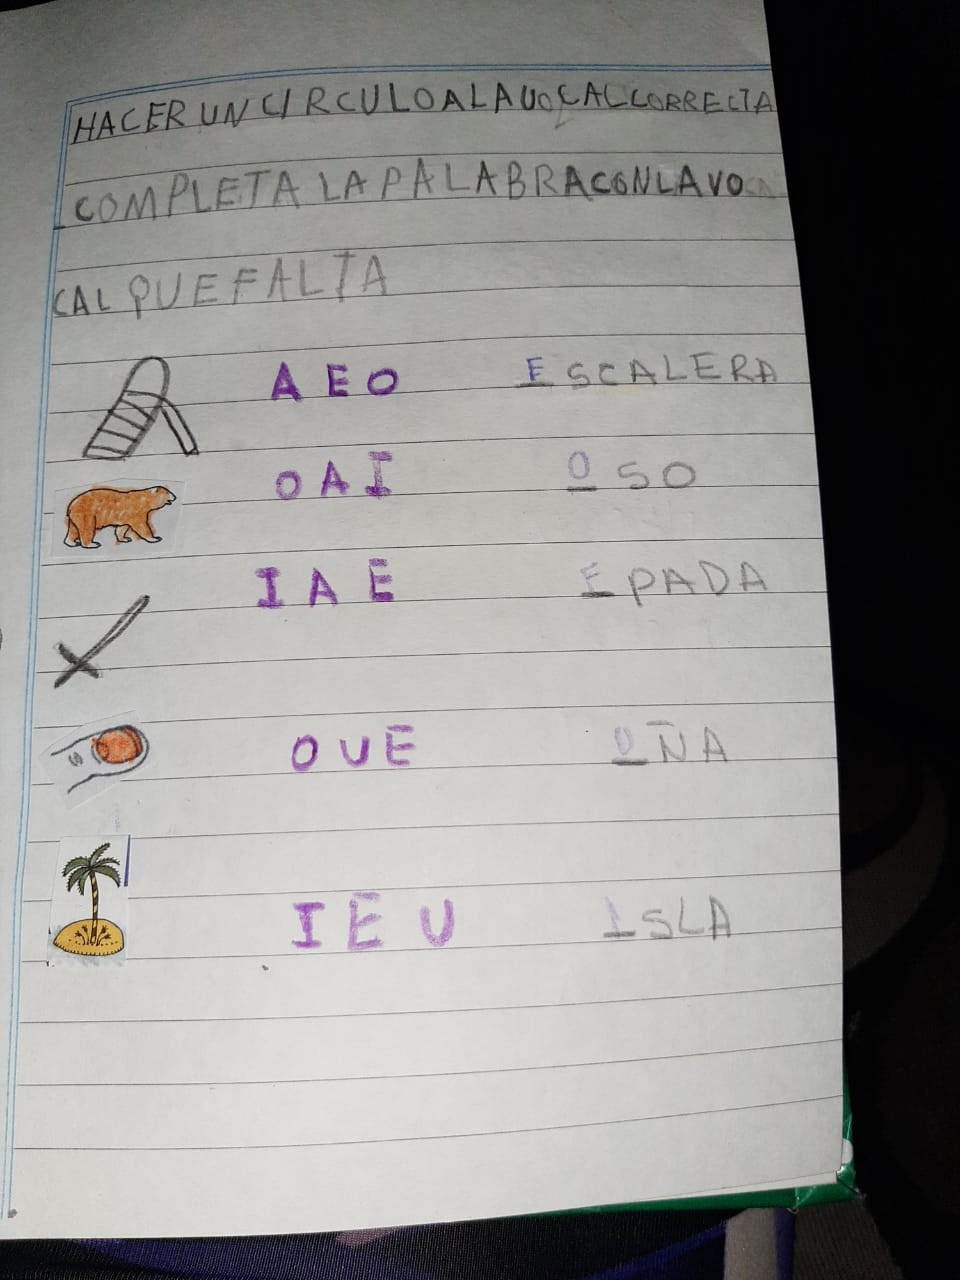 HACER UN CIRCULO A LA VOCAL CORRECTA
COMPLETA LA PALABRA CON LA VO
CAL QUE FALTA
A E O ESCALERA
O A I OSO
I A E EPADA
O U E UÑA
I E U ISLA